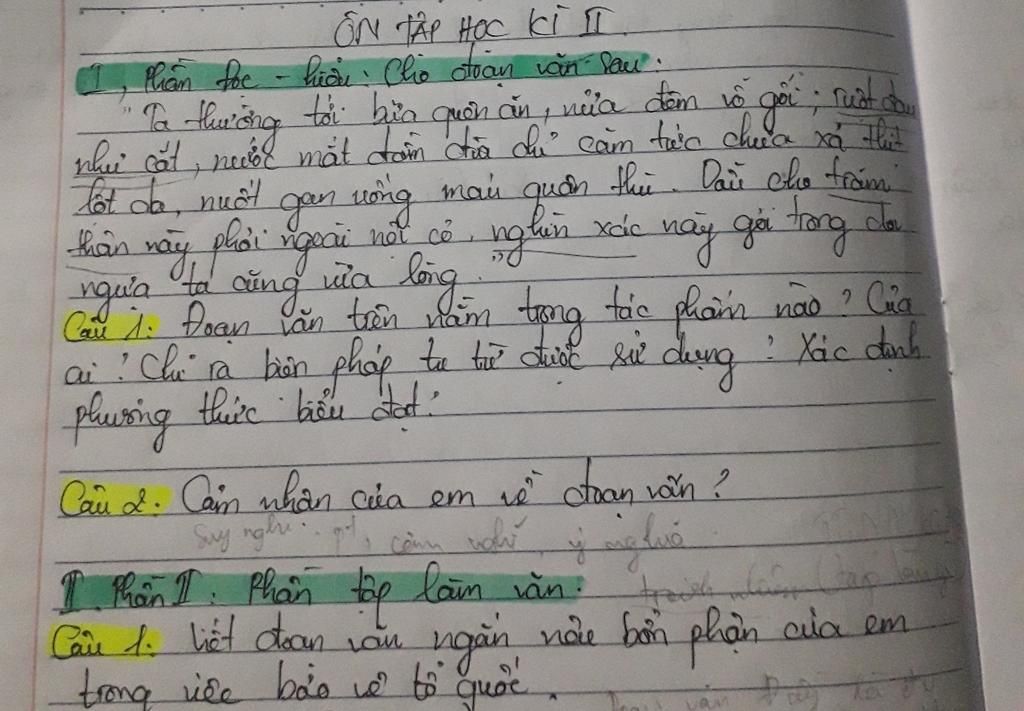 ÔN TẬP HỌC KÌ II
I, Phần đọc - hiểu: Cho đoạn văn sau:
"Ta thường tới bữa quên ăn, nửa đêm vỗ gối; ruột đau
như cắt, nước mắt đầm đìa chỉ căm tức chưa xả thịt
lột da, nuốt gan uống máu quân thù. Dẫu cho trăm
thân này phơi ngoài nội cỏ, nghìn xác này gói trong da
ngựa ta cũng vừa lòng."
Câu 1: Đoạn văn trên nằm trong tác phẩm nào? Của
ai? Chỉ ra biện pháp tu từ được sử dụng? Xác định
phương thức biểu đạt?
Câu 2: Cảm nhận của em về đoạn văn?
Suy nghĩ, pt, cảm nghĩ, ý nghĩa
II. Phần II: Phần tập làm văn:
Câu 1: Viết đoạn văn ngắn nêu bổn phận của em
trong việc bảo vệ tổ quốc.